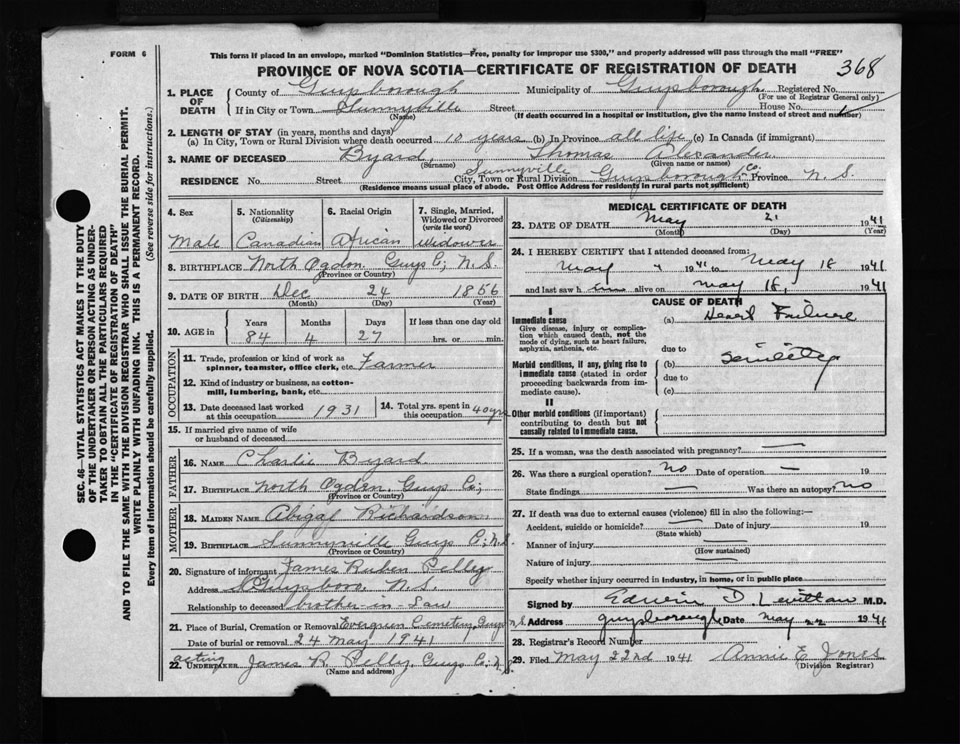 FORM 6
This form if placed in an envelope, marked "Dominion Statistics—Free, penalty for improper use $300," and properly addressed will pass through the mail "FREE"
PROVINCE OF NOVA SCOTIA—CERTIFICATE OF REGISTRATION OF DEATH 368
1. PLACE OF DEATH
County of Guysborough Municipality of Guysborough Registered No.
(For use of Registrar General only)
If in City or Town Sunnyville Street House No.
(Name) (If death occurred in a hospital or institution, give name instead of street and number)
2. LENGTH OF STAY (in years, months and days)
(a) In City, Town or Rural Division where death occurred 10 years (b) In Province all life (c) In Canada (if immigrant)
3. NAME OF DECEASED Byard, Thomas Alexander
(Surname) (Given name or names)
RESIDENCE No. Street City, Town or Rural Division Sunnyville Guysborough Co. Province N. S.
(Residence means usual place of abode. Post Office Address for residents in rural parts not sufficient)
4. Sex
Male
5. Nationality
(Citizenship)
Canadian
6. Racial Origin
African
7. Single, Married, Widowed or Divorced
(write the word)
Widower
8. BIRTHPLACE North Ogden Guys Co; N. S.
(Province or Country)
9. DATE OF BIRTH Dec 24 1856
(Month) (Day) (Year)
10. AGE in
Years Months Days If less than one day old
84 4 27 hrs. or min.
OCCUPATION
11. Trade, profession or kind of work as
spinner, teamster, office clerk, etc. Farmer
12. Kind of industry or business, as cotton-
mill, lumbering, bank, etc.
13. Date deceased last worked
at this occupation 1931
14. Total yrs. spent in
this occupation 40 yrs
15. If married give name of wife
or husband of deceased
FATHER
16. NAME Charlie Byard
17. BIRTHPLACE North Ogden, Guys Co;
(Province or Country)
MOTHER
18. MAIDEN NAME Abigal Richardson
19. BIRTHPLACE Sunnyville Guys Co; N.S.
(Province or Country)
20. Signature of informant James Ruben Pelley
Address Guysboro, N. S.
Relationship to deceased brother-in-Law
21. Place of Burial, Cremation or Removal Evergreen Cemetery, Guys N.S.
Date of burial or removal 24 May 1941
acting
22. UNDERTAKER James R. Pelley, Guys Co; N.S.
(Name and address)
MEDICAL CERTIFICATE OF DEATH
23. DATE OF DEATH May 21 1941
(Month) (Day) (Year)
24. I HEREBY CERTIFY that I attended deceased from:
May 1941 to May 18 1941
and last saw him alive on May 18, 1941
CAUSE OF DEATH
I
Immediate cause
Give disease, injury or complica-
tion which caused death, not the
mode of dying, such as heart failure,
asphyxia, asthenia, etc.
(a) Heart Failure
due to
Morbid conditions, if any, giving rise to
immediate cause (stated in order
proceeding backwards from im-
mediate cause).
(b) Senility
due to
(c)
II
Other morbid conditions (if important)
contributing to death but not
causally related to immediate cause.
25. If a woman, was the death associated with pregnancy? —
26. Was there a surgical operation? No Date of operation — 19
State findings — Was there an autopsy? no
27. If death was due to external causes (violence) fill in also the following:—
Accident, suicide or homicide? — Date of injury 19
(State which)
Manner of injury
(How sustained)
Nature of injury
Specify whether injury occurred in industry, in home, or in public place
Signed by Edwin D. M.D.
Address Guysborough Date May 22 1941
28. Registrar's Record Number
29. Filed May 22nd 1941 Annie E. Jones
(Division Registrar)
SEC. 46—VITAL STATISTICS ACT MAKES IT THE DUTY
OF THE UNDERTAKER OR PERSON ACTING AS UNDER-
TAKER TO OBTAIN ALL THE PARTICULARS REQUIRED
IN THE "CERTIFICATE OF REGISTRATION OF DEATH"
AND TO FILE THE SAME WITH THE DIVISION REGISTRAR WHO SHALL ISSUE THE BURIAL PERMIT.
WRITE PLAINLY WITH UNFADING INK. THIS IS A PERMANENT RECORD.
Every item of information should be carefully supplied. (See reverse side for instructions.)